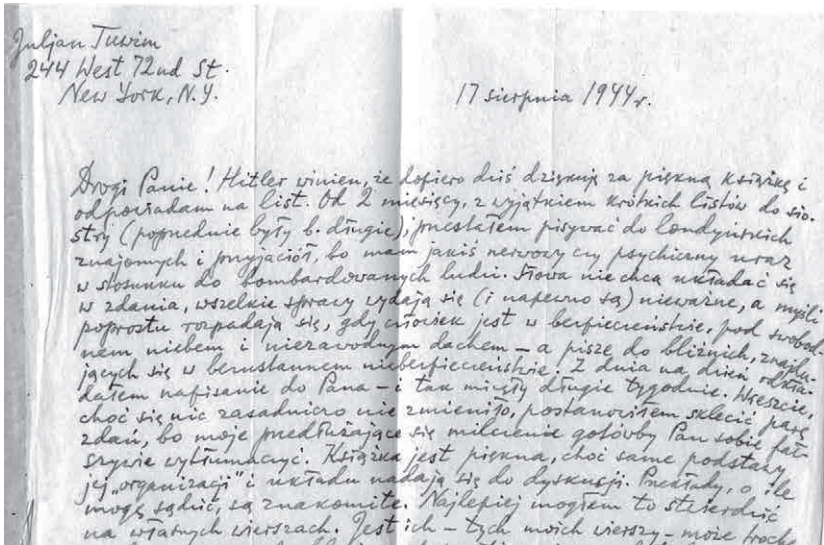 Juljan Tuwim
244 West 72nd St.
New York, N.Y.
17 sierpnia 1944 r.
Drogi Panie! Hitler winien, że dopiero dziś dziękuję za piękną książkę i
odpowiadam na list. Od 2 miesięcy, z wyjątkiem krótkich listów do sio-
stry (poprzednie były b. długie), przestałem pisywać do londyńskich
znajomych i przyjaciół, bo mam jakiś nerwowy czy psychiczny uraz
w stosunku do bombardowanych ludzi. Słowa nie chcą układać się
w zdania, wszelkie sprawy wydają się (i napewno są) nieważne, a myśli
poprostu rozpadają się, gdy człowiek jest w bezpieczeństwie, pod swobod-
nem niebem i niezawodnym dachem – a pisze do bliźnich, znajdu-
jących się w bezustannem niebezpieczeństwie. Z dnia na dzień odkła-
dałem napisanie do Pana – i tak minęły długie tygodnie. Wreszcie,
choć się nic zasadniczo nie zmieniło, postanowiłem sklecić parę
zdań, bo moje przedłużające się milczenie gotówby Pan sobie fał-
szywie wytłumaczyć. Książka jest piękna, choć same podstawy
jej „organizacji" i układu nadają się do dyskusji. Przekłady, o ile
mogę sądzić, są znakomite. Najlepiej mogłem to stwierdzić
na własnych wierszach. Jest ich – tych moich wierszy – może trochę